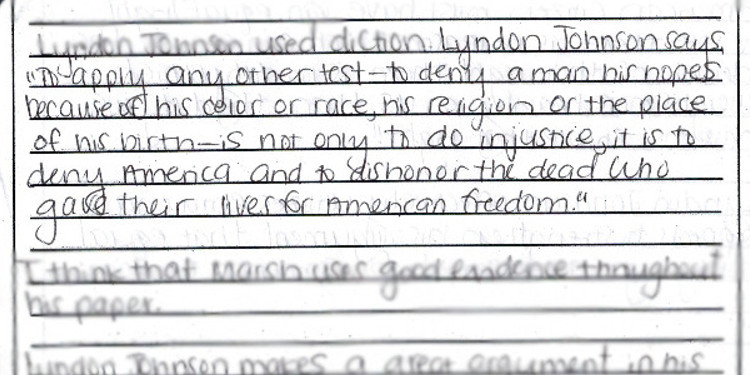 Lyndon Johnson used diction. Lyndon Johnson says,
"To apply any other test—to deny a man his hopes
because of his color or race, his religion or the place
of his birth—is not only to do injustice, it is to
deny America and to dishonor the dead who
gave their lives for American freedom."
I think that Marsh uses good evidence throughout
his paper.
Lyndon Johnson makes a great argument in his